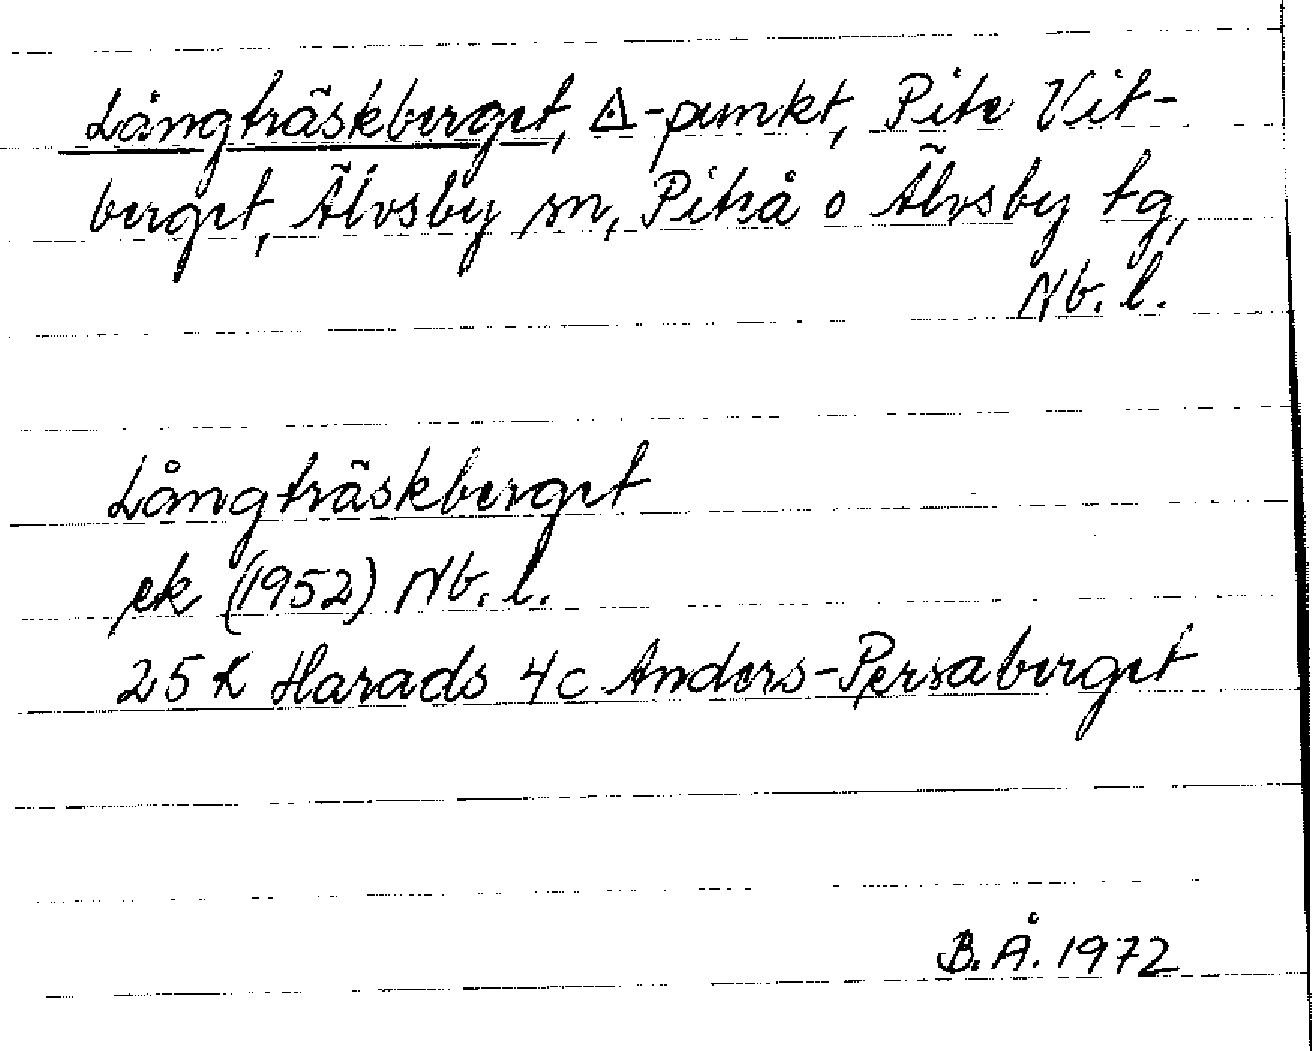 Långträskberget, ◬-punkt, Pite Vit-
berget, Älvsby sn, Piteå o Älvsby tg,
Nb. l.
Långträskberget
ek (1952) Nb. l.
25 K Harads 4c Anders-Persaberget
B.Å. 1972